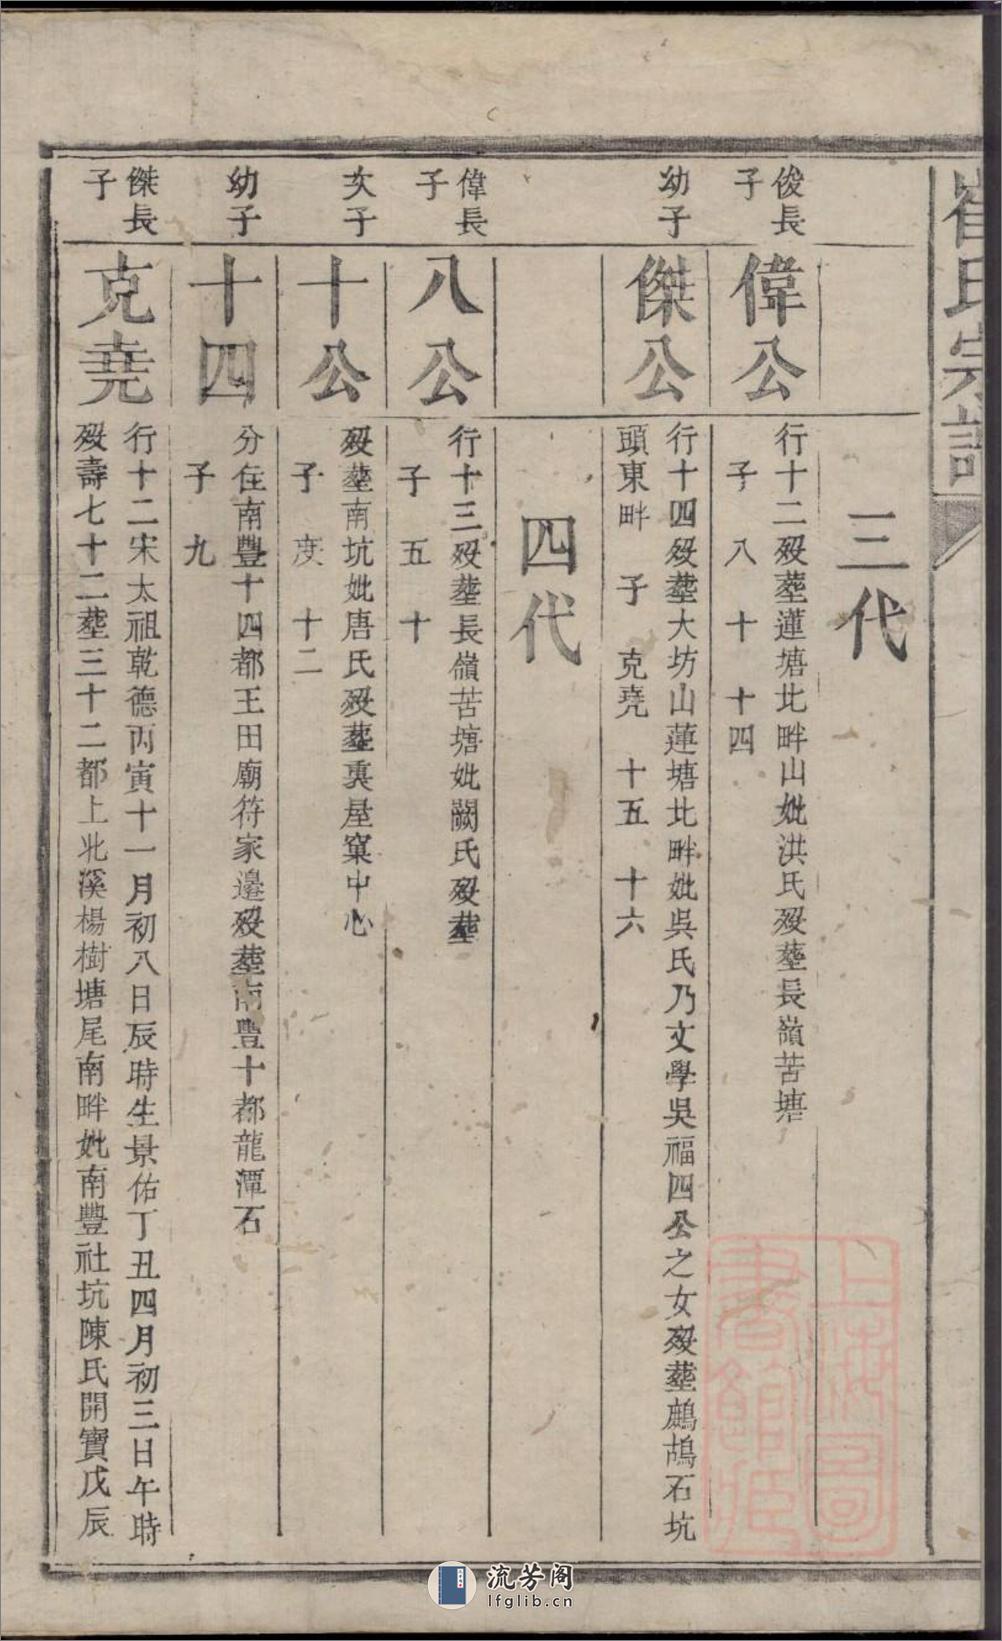 崔氏宗譜
三代
俊長子
偉公
行十二歿塟蓮塘北畔山妣洪氏歿塟長嶺苦塘
子 八 十 十四
幼子
傑公
行十四歿塟大坊山蓮塘北畔妣吳氏乃文學吳福四公之女歿塟鷓鴣石坑
頭東畔 子 克堯 十五 十六
四代
偉長子
八公
行十三歿塟長嶺苦塘妣闕氏歿塟
子 五 十
次子
十公
歿塟南坑妣唐氏歿塟裏屋窠中心
子 度 十二
幼子
十四
分住南豐十四都王田廟符家邊歿塟南豐十都龍潭石
子 九
傑長子
克堯
行十二宋太祖乾德丙寅十一月初八日辰時生景佑丁丑四月初三日午時
歿壽七十二塟三十二都上北溪楊樹塘尾南畔妣南豐社坑陳氏開寶戊辰
上海圖書館藏
流芳阁
lfglib.cn